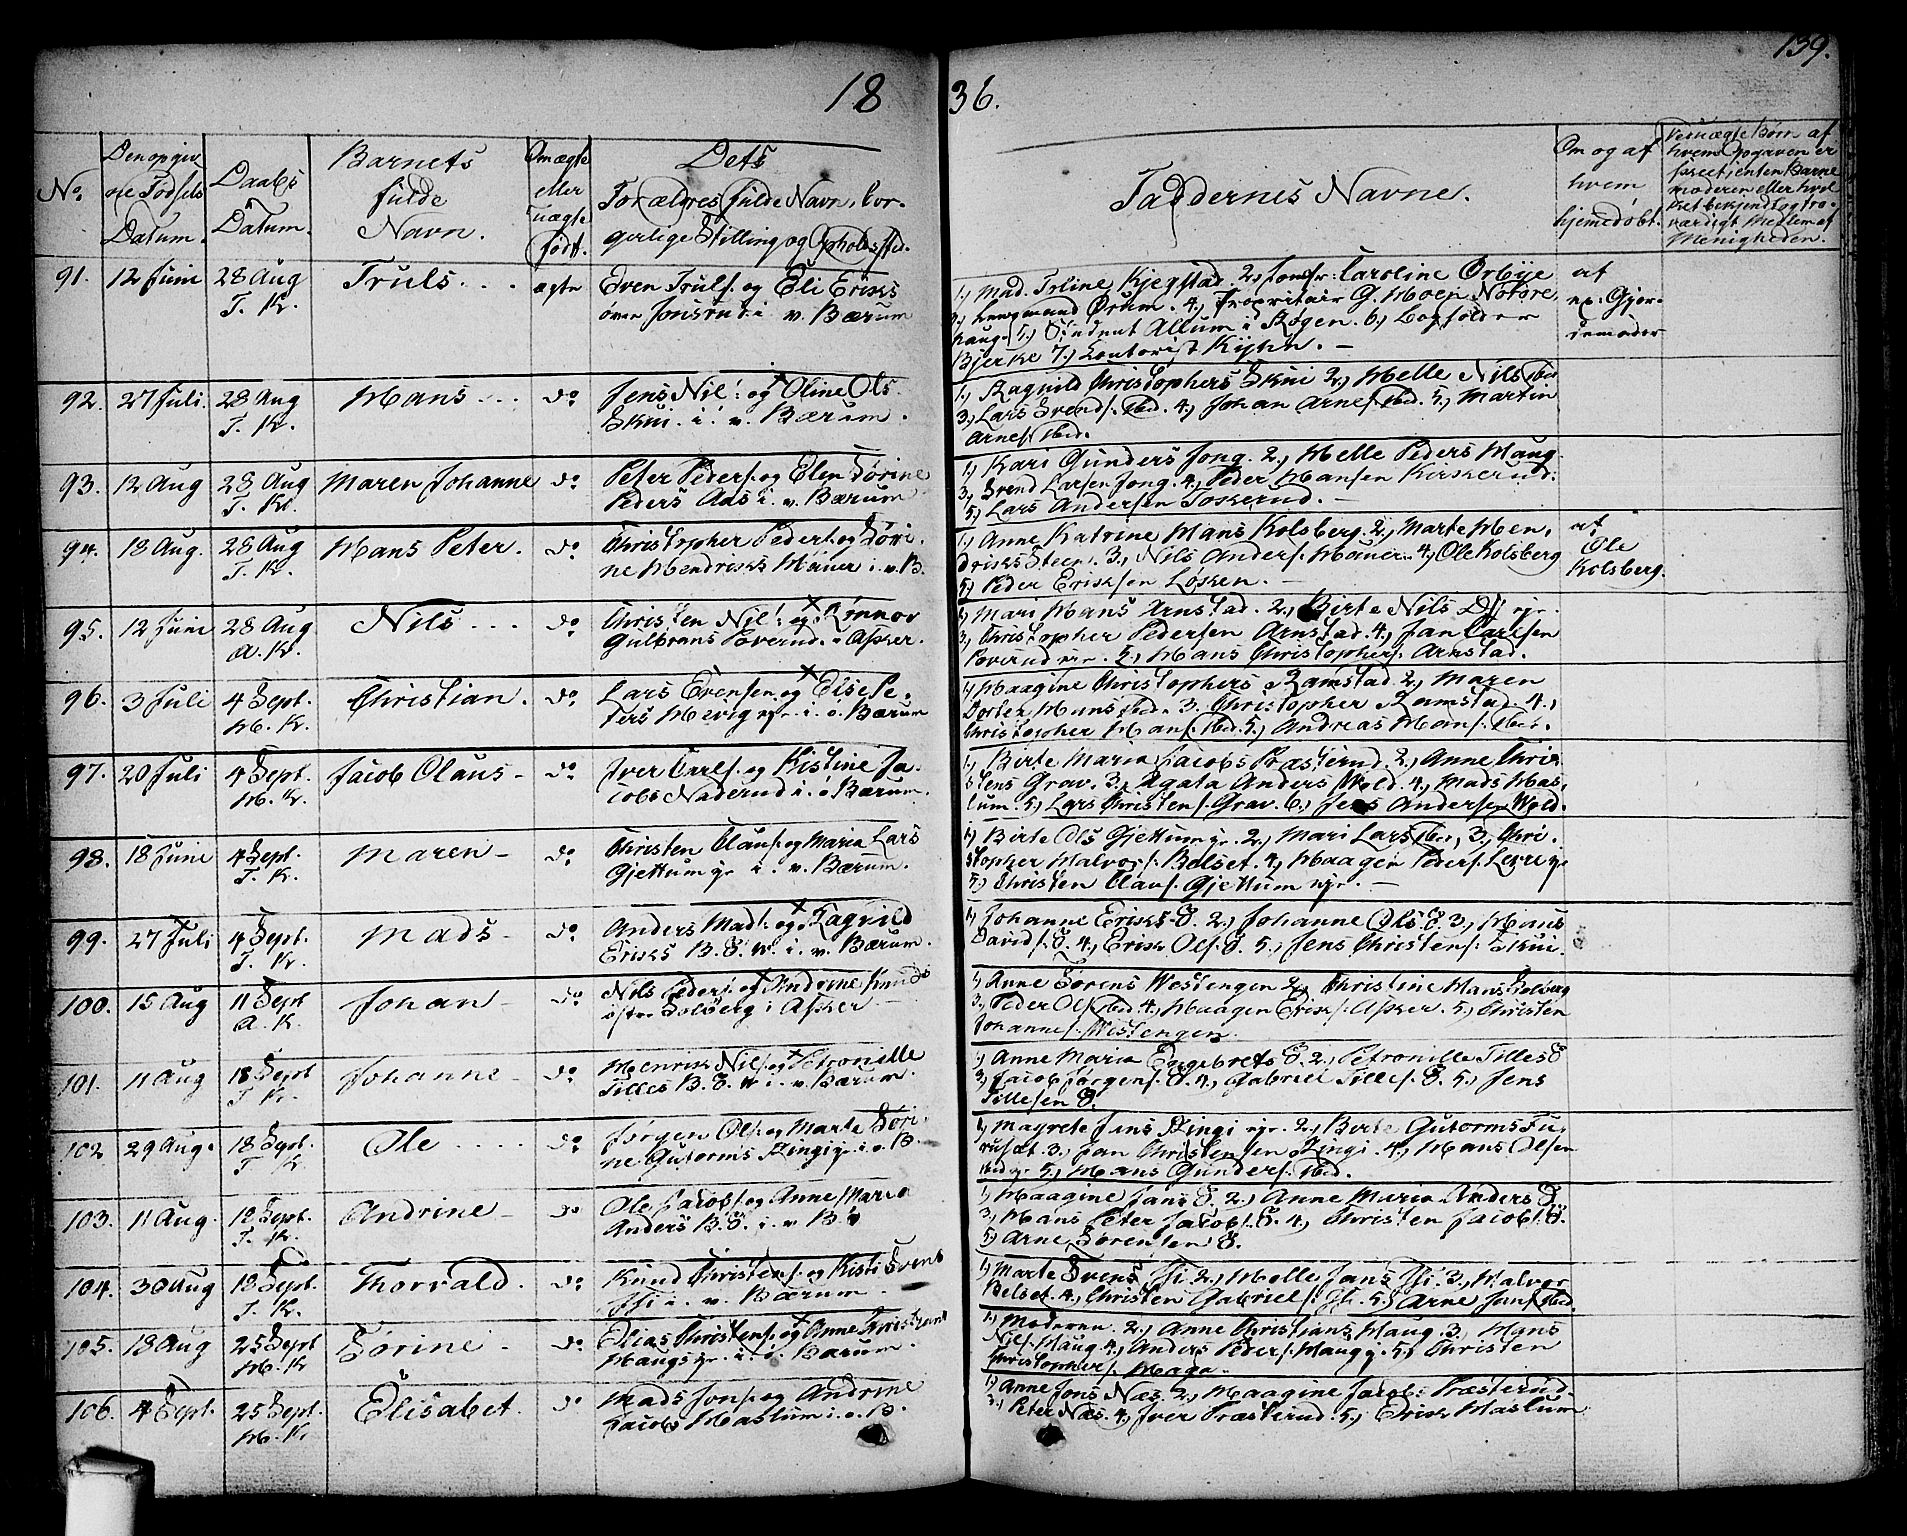 139.
18 36.
No.
Den opgiv
ne Fødsels
Datum.
Daabs
Datum.
Barnets
fulde
Navn.
Om ægte
eller
uægte
født.
Dets
Forældres fulde Navn, bor-
gerlige Stilling og Opholdssted.
Faddernes Navne.
Om og af
hvem
hjemedøbt.
Ved uægte Børn af
hvem Opgaven er
Menigheden.
91. 12 Juni 28 Aug T. K. Truls ægte
Even Truls. og Eli Eriks
øvre Jonsrud i v. Bærum
1, Mad. Trline Kjegstad. 2, Jomfr: Caroline Ørbye
3, Lengmand Ørum. 4, Proprietair G. Moen Notøre,
haug. 5, Student Allum i Røgen. 6, Logfolder
Bjerke 7, Contorist Kyhn. —
af
ex: Gjor-
demoder
92. 27 Juli. 28 Aug T. K. Hans do
Jens Nil: og Oline Ols
Skui. i. v. Bærum.
1, Ragnild Christophers Skui 2, Helle Nils ibid
3, Lars Svends. ibid. 4, Johan Arnes. ibid. 5, Martin
Arnes. ibid.
93. 12 Aug 28 Aug T. K. Maren Johanne do
Peter Peders. og Elen Sørine
Peders Aas i. v. Bærum
1, Kari Gunders Jong. 2, Helle Peders Haug.
3, Svend Larsen Jong. 4, Peder Hansen Kirkerud.
5, Lars Andersen Toskerud. —
94. 18 Aug. 28 Aug T. K. Hans Peter. do
Christopher Peders. og Søri-
ne Hendriks Hauer i. v. B.
1, Anne Katrine Hans Kolsberg. 2, Marte Hen,
driks Steen. 3, Nils Anders. Hauer. 4, Ole Kolsberg
5, Peder Eriksen Løkken. —
af
Ole
Kolsberg.
95. 12 Juni 28 Aug A. K. Nils do
Christen Nil: og Rønnov
Gulbrans Poverud. i Asker.
1, Mari Hans Arnstad. 2, Birte Nils
3, Christopher Pedersen Arnstad. 4, Jan Larsen
Poverud eje. 5, Hans Christophers. Arnstad.
96. 3 Juli 4 Sept. H. K. Christian. do
Lars Evensen og Elise Pe-
ters Hevig eje. i. ø. Bærum
1, Haagine Christophers Ramstad. 2, Maren
Dortea Hans ibid. 3. Christopher Ramstad. 4,
Christopher Hans. ibid. 5, Andreas Hans. ibid.
97. 20 Juli 4 Sept. H. K. Jacob Olaus do
Iver Carls. og Kistine Ja-
cobs Naderud i. ø Bærum.
1, Birte Maria Jacobs Præsterud. 2, Anne Chris
tens Grav. 3, Agata Anders Wold. 4, Mads Has,
lum. 5, Lars Christens. Grav. 6, Jens Andersen Wold.
98. 18 Juni 4 Sept. T. K. Maren do
Christen Claus. og Maria Lars
Gjettum eje i. v. Bærum.
1, Birte Ols Gjettum eje. 2, Mari Lars ibid, 3, Chri-
stopher Halvors. Belset. 4, Haagen Peders.
5, Christen Claus. Gjettum eje. —
99. 27 Juli 4 Sept. T. K. Mads do
Anders Mad: og Ragnild
Eriks B. V. i. v. Bærum.
1, Johanne Eriks V. 2, Johanne Ols V. 3, Hans
Davids. V. 4, Erik Ols. V. 5, Jens Christens. Skui.
100. 15 Aug 11 Sept A. K. Johan do
Nils Peders. og Andrine Knuds
østre Solberg i Asker
1, Anne Sørens Westengen 2, Christine Hans Solberg
3, Peder Ols. ibid. 4, Haagen Eriks. Asker. 5, Christen
Johannes. Westengen.
101. 11 Aug 18 Sept T. K. Johanne do
Henrik Nils. og Petronille
Tilles B. V. i. v. Bærum.
1, Anne Maria Engebrets V. 2, Petronille Tilles V
3, Jacob Jørgens. V. 4, Gabriel Tilles. V. 5, Jens
Tillesen V.
102 29 Aug. 18 Sept. T. K. Ole do
Jørgen Ols. og Marte Søri-
ne Gutorms Ringi eje. i. v. B.
1, Magrete Jens Ringi eje. 2, Birte Gutorms Fu,
ruset. 3, Jan Christensen Ringi. 4, Hans Olsen
ibid eje 5, Hans Gunders. ibid.
103. 11 Aug. 18 Sept. T. K. Andrine do
Ole Jacobs. og Anne Maria
Anders B. V. i. v. B.
1, Haagine Jans V. 2, Anne Maria Anders V.
3, Hans Peter Jacobs. V. 4, Christen Jacobs. V.
5, Arne Sorensen V.
104. 30 Aug 18 Sept. T. K. Thorvald. do
Knud Christens. og Kisti Svens
i. v. Bærum.
1, Marte Svens 2, Helle Jans 3, Halvor
Belset. 4, Christen Gabriels. 5, Arne Jans. ibid.
105. 18 Aug 25 Sept H. K Sørine do
Elias Christens. og Anne Christians
Haugs eje. i. ø. Bærum.
1, Moderen. 2, Anne Christians Haug. 3, Hans
Nils. Haug. 4, Anders Peders. Haug. 5, Christen
Christophers. Haga.
106. 4 Sept. 25 Sept. H. K. Elisabet. do
Mads Jons. og Andrine
Jacobs Haslum i. ø. B.
1, Anne Jons Næs. 2, Haagine Jacob: Præsterud.
3, Peter Næs. 4, Iver Præsterud. 5, Erik Haslum